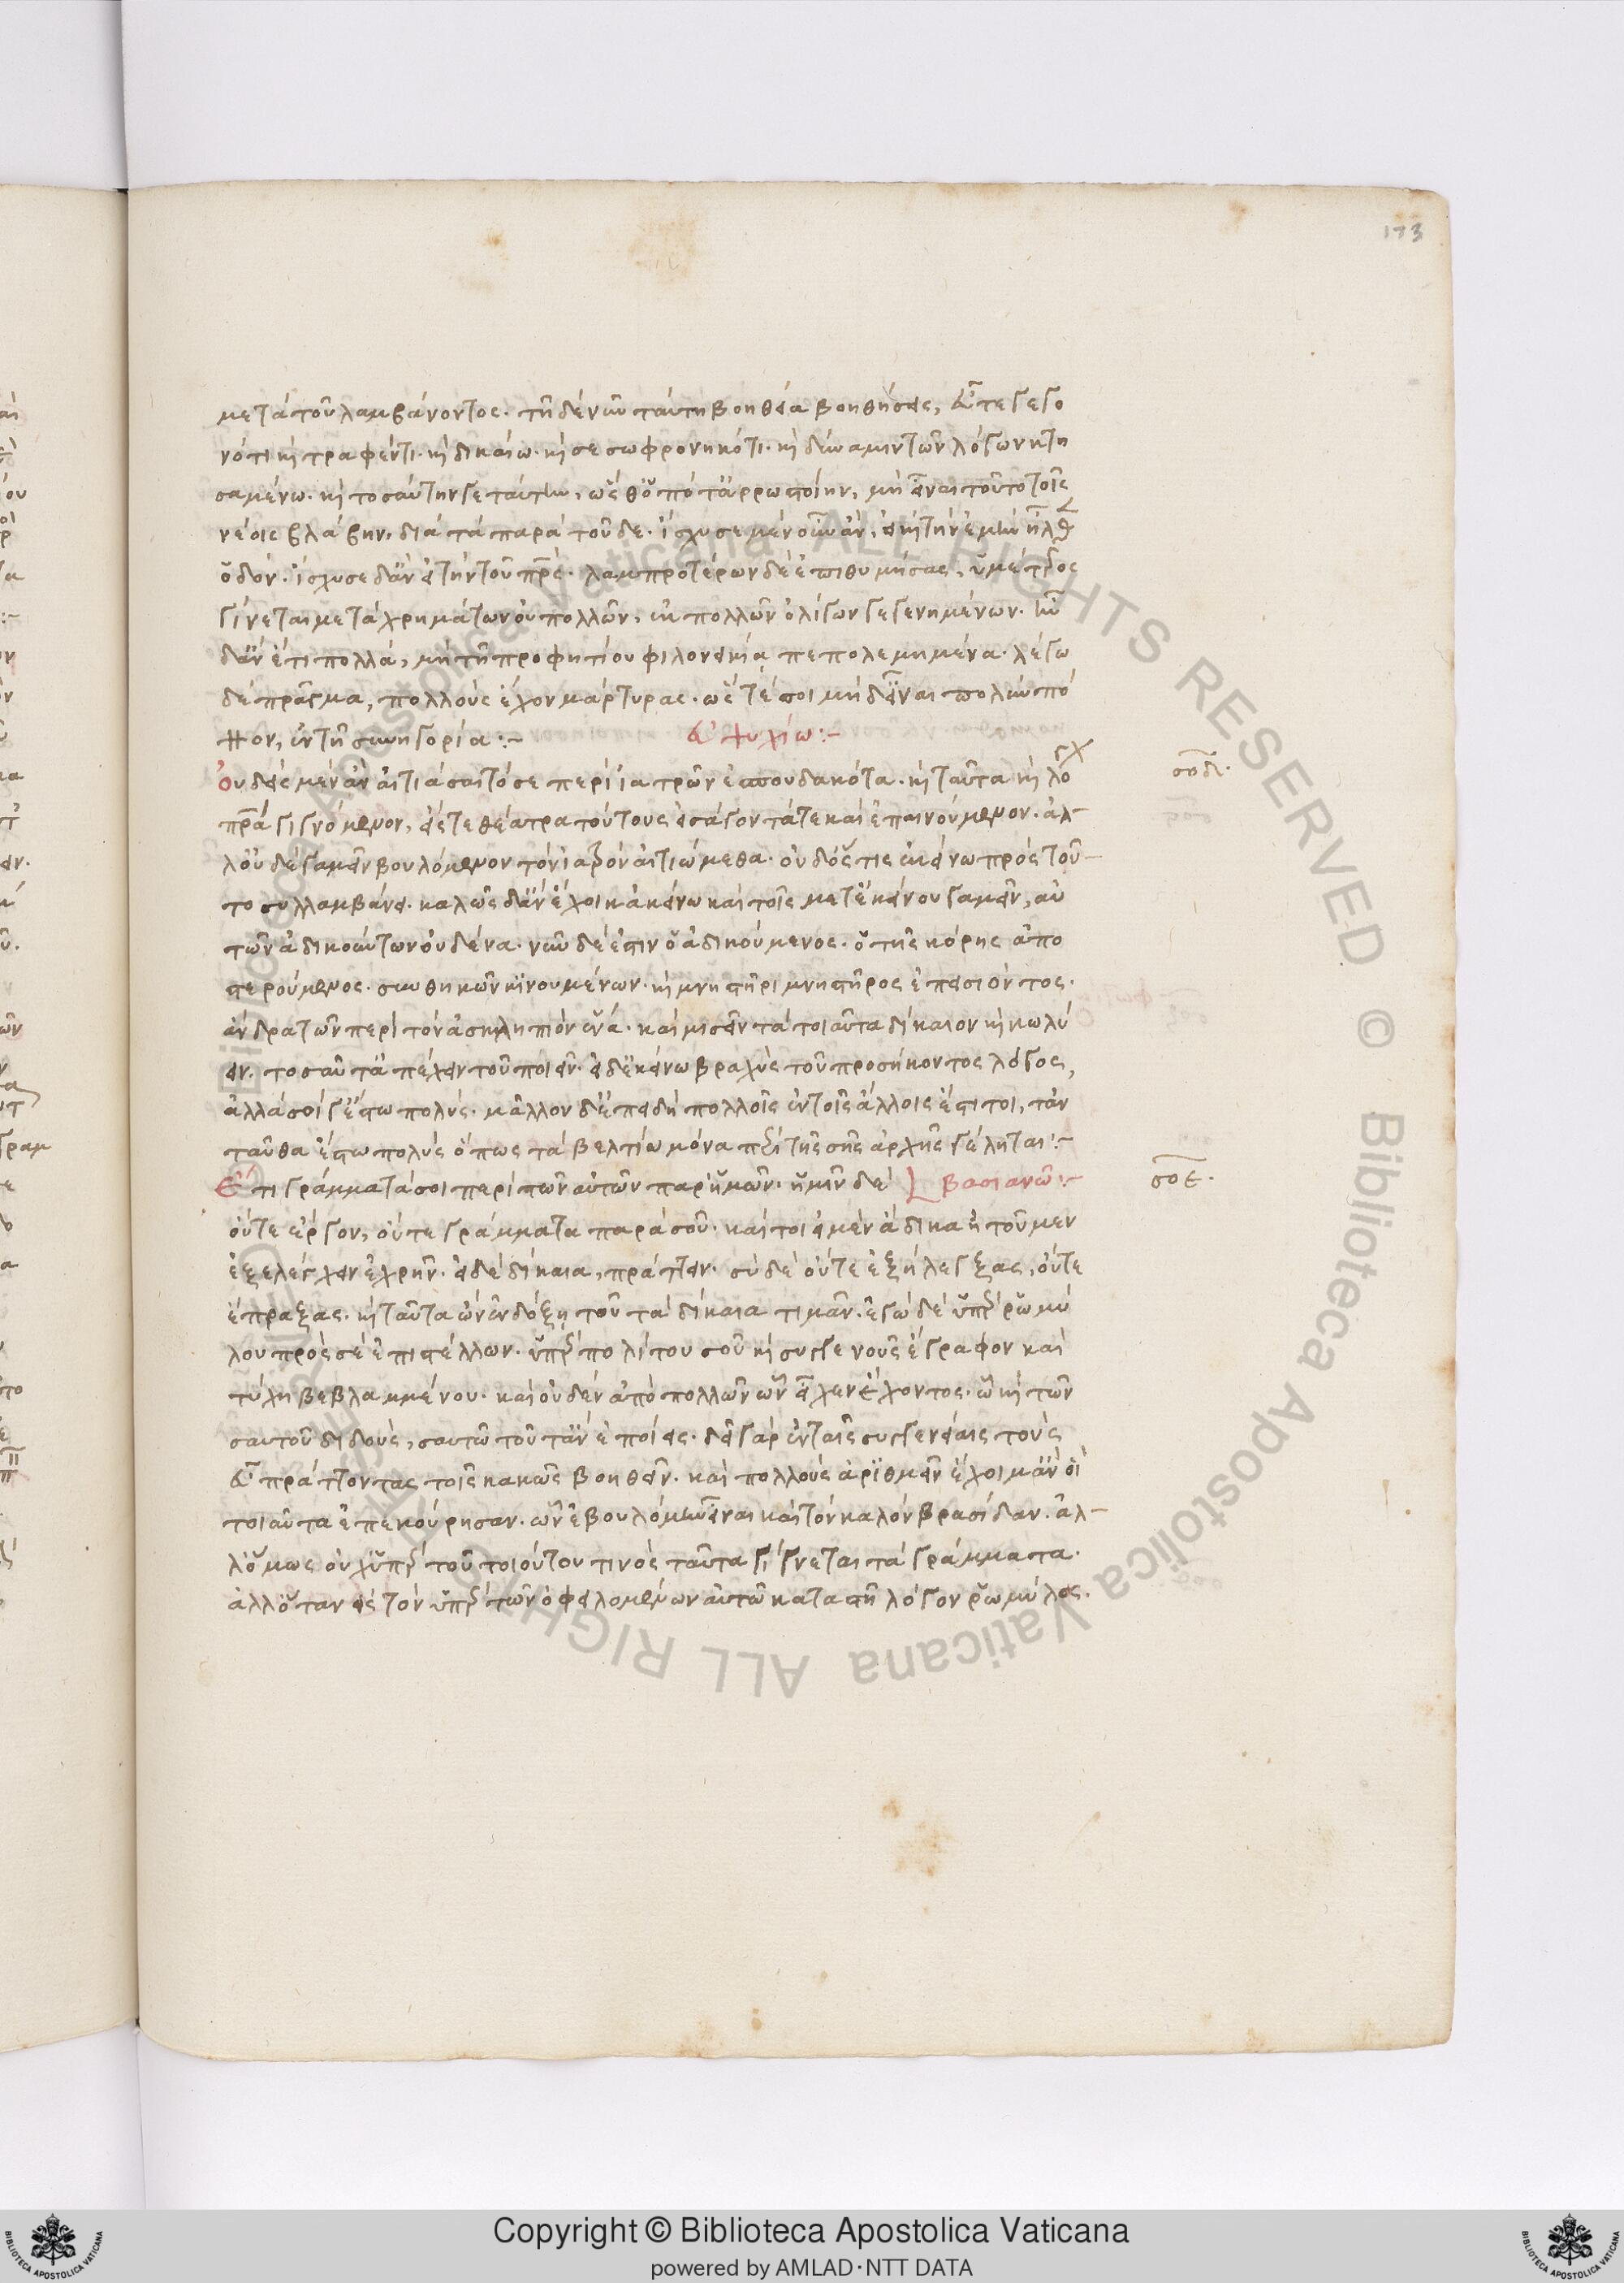 173
μετὰ τοῦ λαμβάνοντος. τῇ δὲ νῦν ταύτῃ βοηθεία βοηθήσεις, εὖ τε γεγο
νότι καὶ τραφέντι. καὶ δικαίω. καὶ σεσωφρονηκότι. καὶ δύναμιν τῶν λόγων κτη
σαμένω. καὶ τοσαύτην γε ταύτην, ὥσθ' ὁπότ' ἀρρωστοίην, μὴ εἶναι τοῦτο τοῖς
νέοις βλάβην, διὰ τὰ παρὰ τοῦδε. ἴσχυσε μὲν οὖν ἂν, εἰ καὶ τὴν ἐμὴν ἦλθ
ὁδόν. ἴσχυσε δ' ἂν εἰ τὴν τοῦ πρς. λαμπροτέρων δὲ ἐπιθυμήσας, ὑμέτερος
γίνεται μετὰ χρημάτων οὐ πολλῶν, ἐκ πολλῶν ὀλίγων γεγενημένων. ἦν
δ' ἂν ἔτι πολλὰ, μὴ τῇ προφητίου φιλονεικία πεπολεμημένα. λέγω
δὲ πρᾶγμα, πολλοὺς ἔχον μάρτυρας. ὥστέ σοι μὴ δεῖναι πολὺν πό
νον, ἐν τῇ συνηγορία :~ εὐτυχίω :~
Οὐδεὶς μὲν ἂν αἰτιάσαιτό σε περὶ ἰατρῶν ἐσπουδακότα. καὶ ταῦτα καὶ λόγχ
πρα γιγνόμενον, εἴς τε θέατρα τούτους εἰσάγοντά τε καὶ ἐπαινούμενον. ἀλ-
λ' οὐδὲ γαμεῖν βουλόμενον τὸν ἰατρὸν αἰτιώμεθα. οὐδ' ὅστις ἐκείνω πρὸς τοῦ-
το συλλαμβάνει. καλῶς δ' ἂν ἔχοι κἀκείνω καὶ τοῖς μετ' ἐκείνου γαμεῖν, αὐ
τῶν ἀδικούντων οὐδένα. νῦν δέ ἐστιν ὁ ἀδικούμενος. ὁ τῆς κόρης ἀπο
στερούμενος. συνθηκῶν κινουμένων. καὶ μνηστῆρι μνηστῆρος ἐπεισιόντος.
ἄνδρα τῶν περὶ τὸν ἀσκληπιὸν ἕνα. καὶ μισεῖν τὰ τοιαῦτα δίκαιον καὶ κωλύ
ειν. τοσαῦτ' ἀπέχειν τοῦ ποιεῖν. εἰ δ' ἐκείνω βραχὺς τοῦ προσήκοντος λόγος,
ἀλλὰ σοί γ' ἔστω πολύς. μᾶλλον δ' ἐπειδὴ πολλοῖς ἐν τοῖς ἄλλοις ἔστι τοι, τἀν
ταῦθα ἔστω πολὺς ὅπως τὰ βελτίω μόνα περὶ τῆς σῆς ἀρχῆς λέγηται :~
Ἔτι γράμματά σοι περὶ τῶν αὐτῶν παρ' ἡμῶν. ἡμῖν δὲ βασιανῶ :~
οὔτε ἔργον, οὔτε γράμματα παρὰ σοῦ. καίτοι εἰ μὲν ἄδικα ᾔτουμεν
ἐξελέγχειν ἐχρῆν. εἰ δὲ δίκαια, πράττειν. σὺ δὲ οὔτε ἐξήλεγξας, οὔτε
ἔπραξας. καὶ ταῦτα ὢν ἐν δόξῃ τοῦ τὰ δίκαια τιμᾶν. ἐγὼ δὲ ὑπὲρ ῥωμύ
λου πρὸς σὲ ἐπιστέλλων. ὑπὲρ πολίτου σοῦ καὶ συγγενοῦς ἔγραφον καὶ
τύχῃ βεβλαμμένου. καὶ οὐδὲν ἀπὸ πολλῶν ὧν εἶχεν ἔχοντος. ᾧ καὶ τῶν
σαυτοῦ διδοὺς, σαυτῶ τοῦτ' ἂν ἐποίεις. δεῖ γὰρ ἐν ταῖς συγγενείαις τοὺς
εὖ πράττοντας τοῖς κακῶς βοηθεῖν. καὶ πολλοὺς ἀριθμεῖν ἔχοιμ' ἂν οἳ
τοιαῦτα ἐπεκούρησαν. ὧν ἐβουλόμην εἶναι καὶ τὸν καλὸν βρασίδαν. ἀλ-
λ' ὅμως οὐχ ὑπὲρ τοῦ τοιούτου τινὸς ταῦτα γίγνεται τὰ γράμματα.
ἀλλ' ὅταν εἰς τὸν ὑπὲρ τῶν ὀφειλομένων αὐτῶ καταστῇ λόγον ῥωμύλος.
σοδ.
σοε.
Copyright © Biblioteca Apostolica Vaticana
powered by AMLAD·NTT DATA